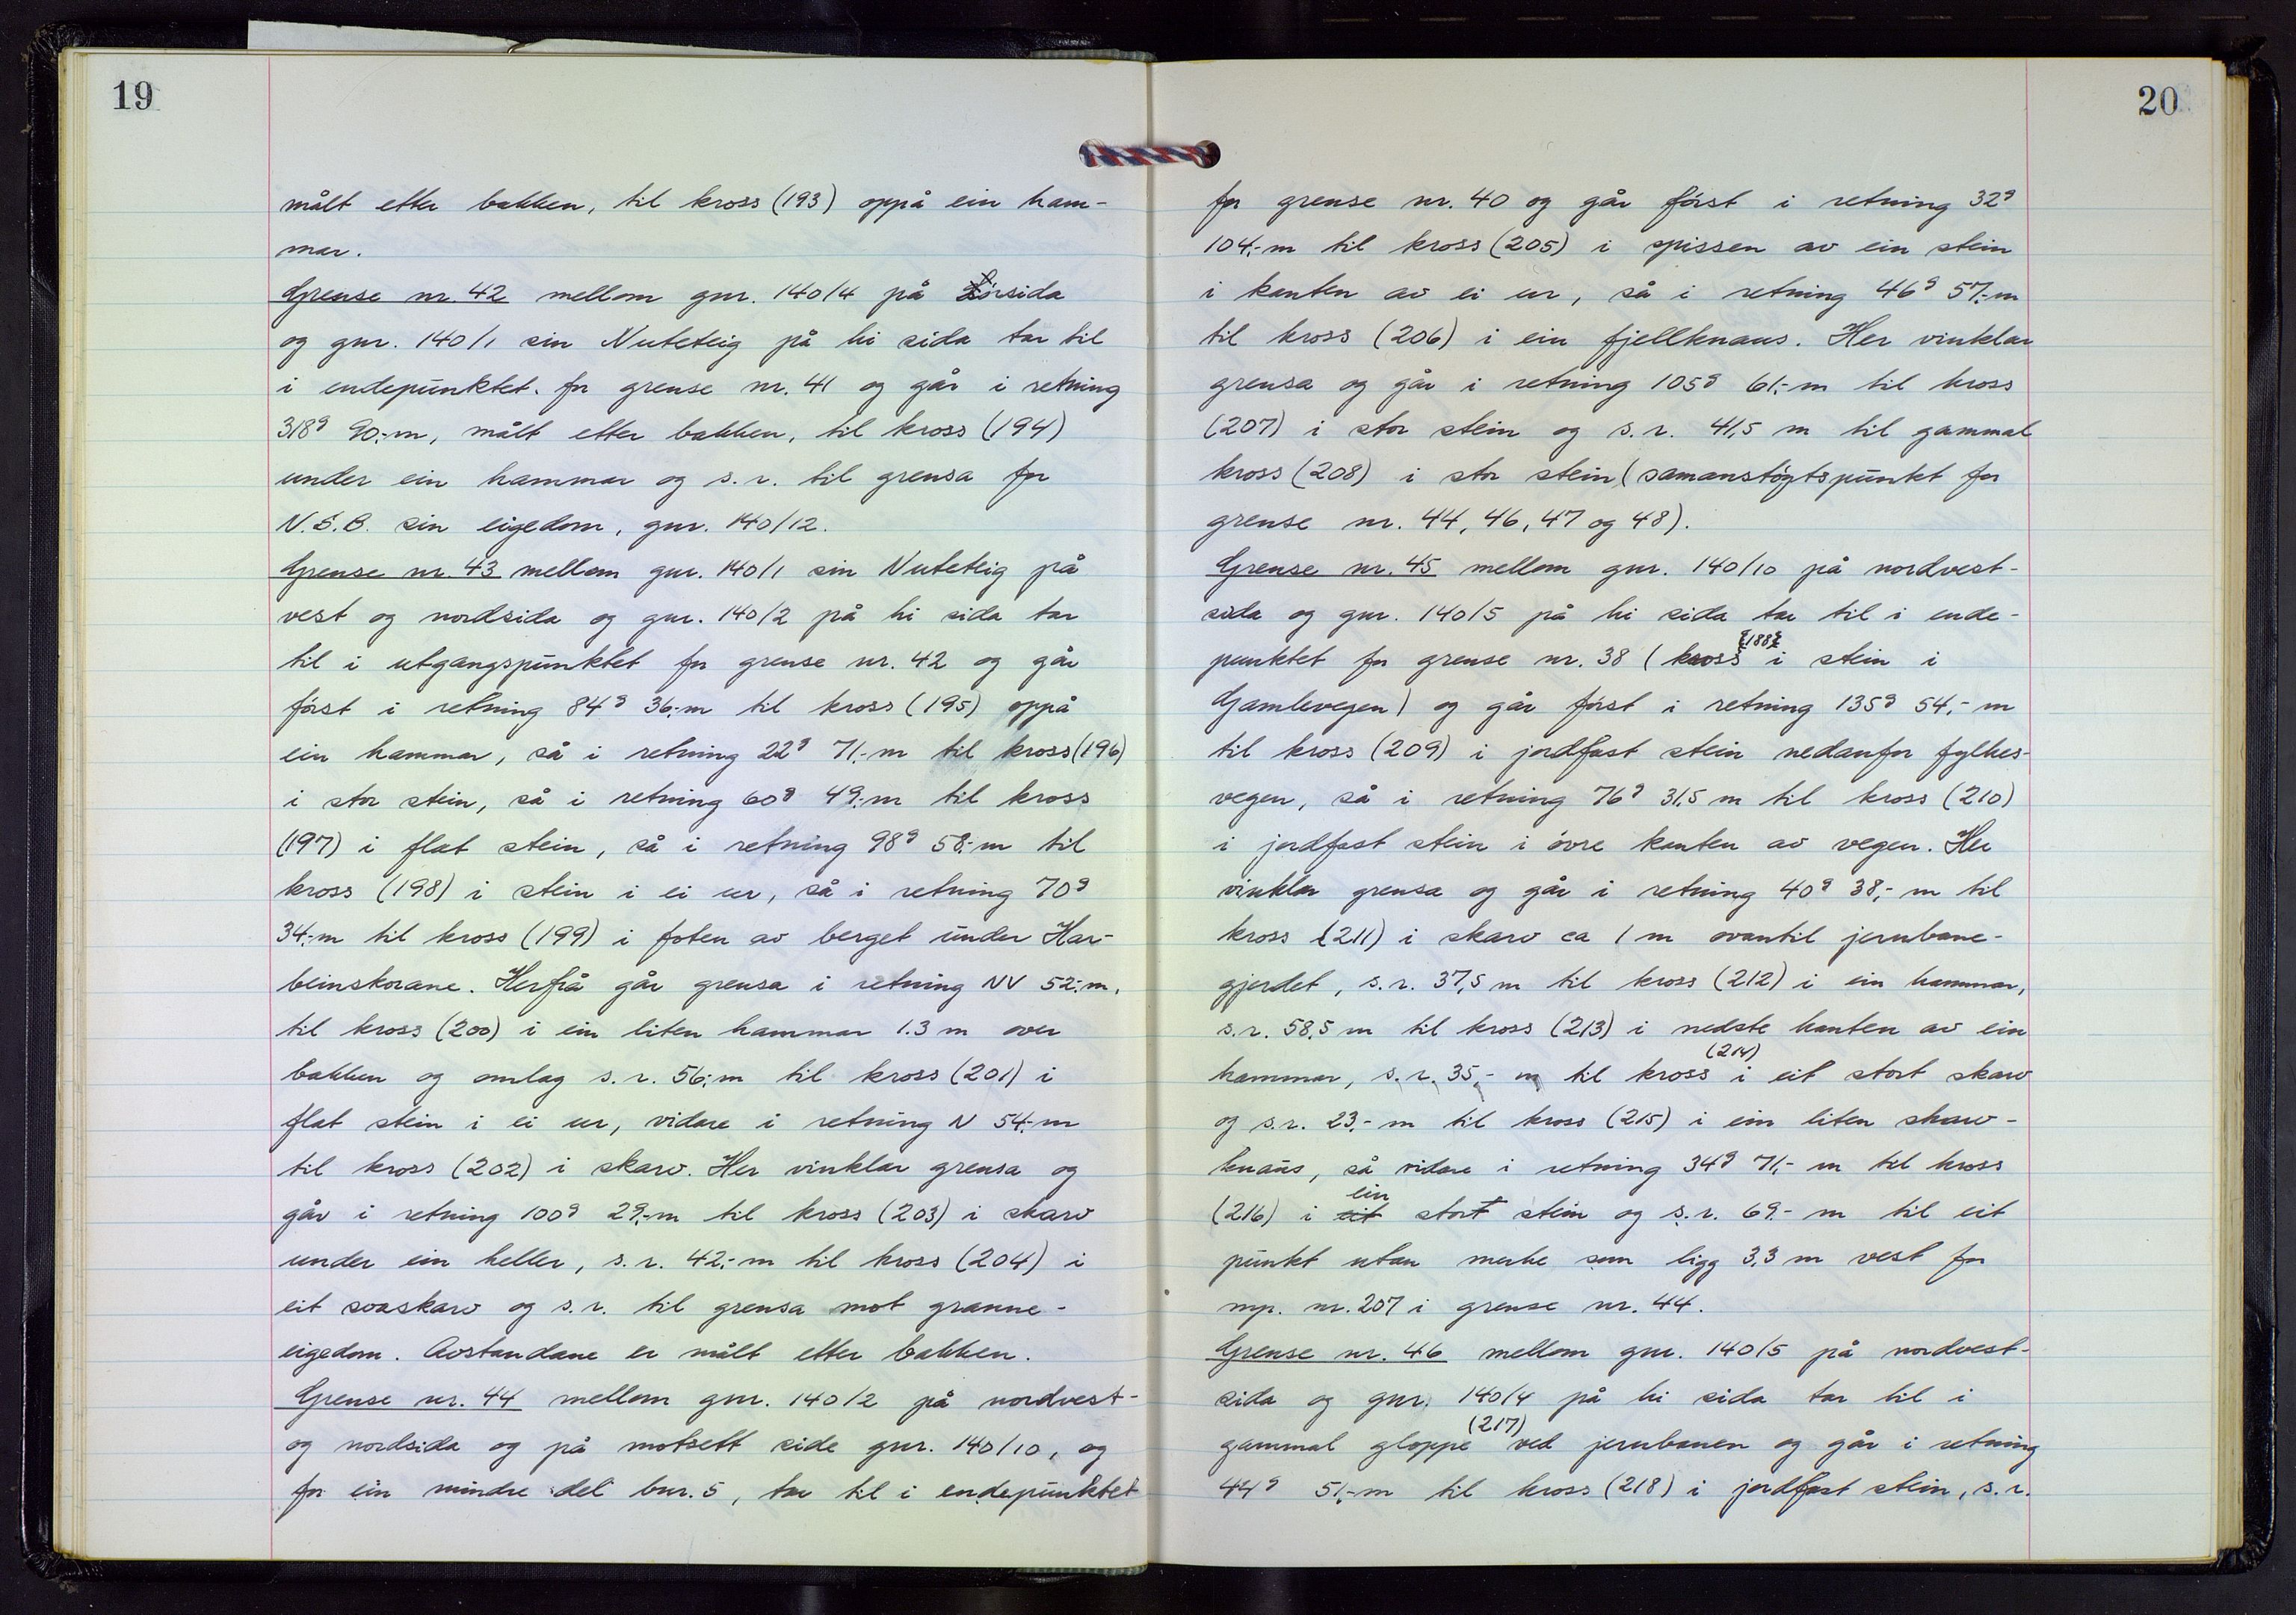 19
målt etter bakken, til kross (193) oppå ein ham-
mar.
Grense nr. 42 mellom gnr. 140/4 på sørsida
og gnr. 140/1 sin Nuteteig på hi sida tar til
i endepunktet for grense nr. 41 og går i retning
318g 90,-m, målt etter bakken, til kross (194)
under ein hammar og s.r. til grensa for
N.S.B. sin eigedom, gnr. 140/12.
Grense nr. 43 mellom gnr. 140/1 sin Nuteteig på
vest og nordsida og gnr. 140/2 på hi sida tar
til i utgangspunktet for grense nr. 42 og går
først i retning 84g 36,-m til kross (195) oppå
ein hammar, så i retning 22g 71,-m til kross (196)
i stor stein, så i retning 60g 49,-m til kross
(197) i flat stein, så i retning 98g 58,-m til
kross (198) i stein i ei ur, så i retning 70g
34,-m til kross (199) i foten av berget under Har-
beinskorane. Herfrå går grensa i retning NV 52,-m,
til kross (200) i ein liten hammar 1.3 m over
bakken og omlag s.r. 56,-m til kross (201) i
flat stein i ei ur, vidare i retning N 54,-m
til kross (202) i skarv. Her vinklar grensa og
går i retning 100g 29,-m til kross (203) i skarv
under ein heller, s.r. 42,-m til kross (204) i
eit svaskarv og s.r. til grensa mot granne-
eigedom. Avstandane er målt etter bakken.
Grense nr. 44 mellom gnr. 140/2 på nordvest-
og nordsida og på motsett side gnr. 140/10, og
for ein mindre del bnr. 5, tar til i endepunktet
20
for grense nr. 40 og går først i retning 32g
104,-m til kross (205) i spissen av ein stein
i kanten av ei ur, så i retning 46g 57,-m
til kross (206) i ein fjellknaus. Her vinklar
grensa og går i retning 105g 61,-m til kross
(207) i stor stein og s.r. 41,5 m til gammal
kross (208) i stor stein (samanstøytspunkt for
grense nr. 44, 46, 47 og 48).
Grense nr. 45 mellom gnr. 140/10 på nordvest-
sida og gnr. 140/5 på hi sida tar til i ende-
punktet for grense nr. 38 (kross (188) i stein i
Gamlevegen) og går først i retning 135g 54,-m
til kross (209) i jordfast stein nedanfor fylkes-
vegen, så i retning 76g 31,5 m til kross (210)
i jordfast stein i øvre kanten av vegen. Her
vinklar grensa og går i retning 40g 38,-m til
kross (211) i skarv ca 1 m ovantil jernbane-
gjerdet, s.r. 37,5 m til kross (212) i ein hammar,
s.r. 58,5 m til kross (213) i nedste kanten av ein
hammar, s.r. 35,- m til kross (214) i eit stort skarv
og s.r. 23,- m til kross (215) i ein liten skarv-
knaus, så vidare i retning 34g 71,- m til kross
(216) i eit ein stort stein og s.r. 69,- m til eit
punkt utan merke som ligg 3,3 m vest for
mp. nr. 207 i grense nr. 44.
Grense nr. 46 mellom gnr. 140/5 på nordvest-
sida og gnr. 140/4 på hi sida tar til i
gammal gloppe (217) ved jernbanen og går i retning
44g 51,-m til kross (218) i jordfast stein, s.r.